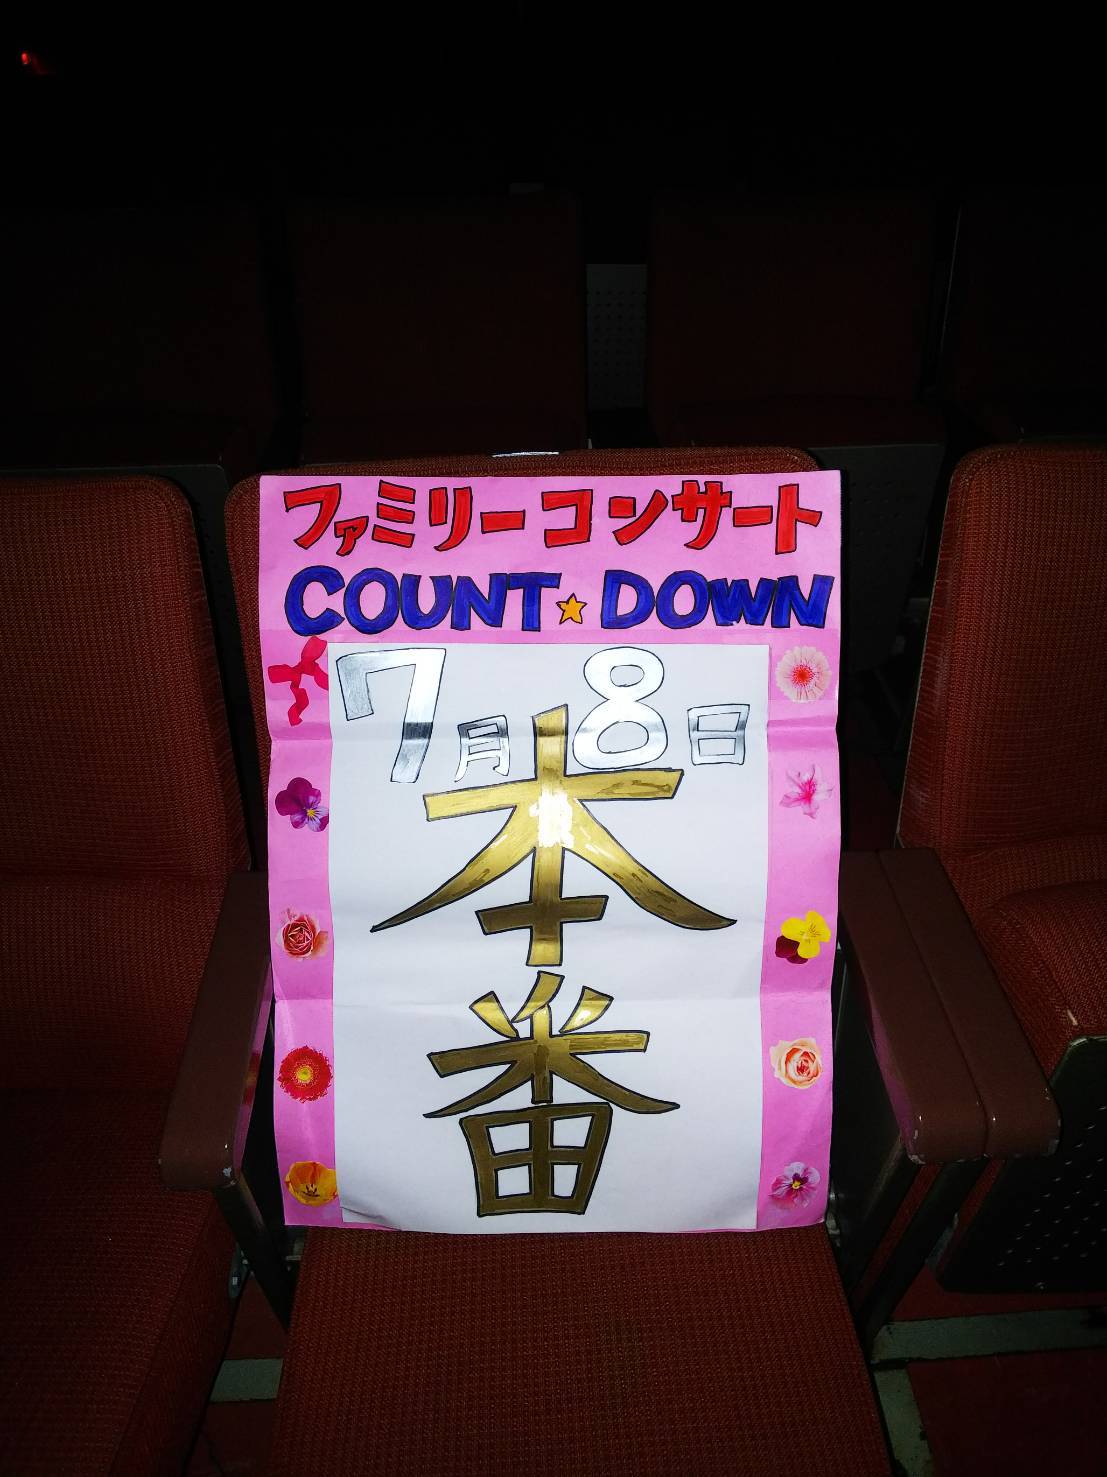 ファミリーコンサート
COUNT★DOWN
7月8日
本番